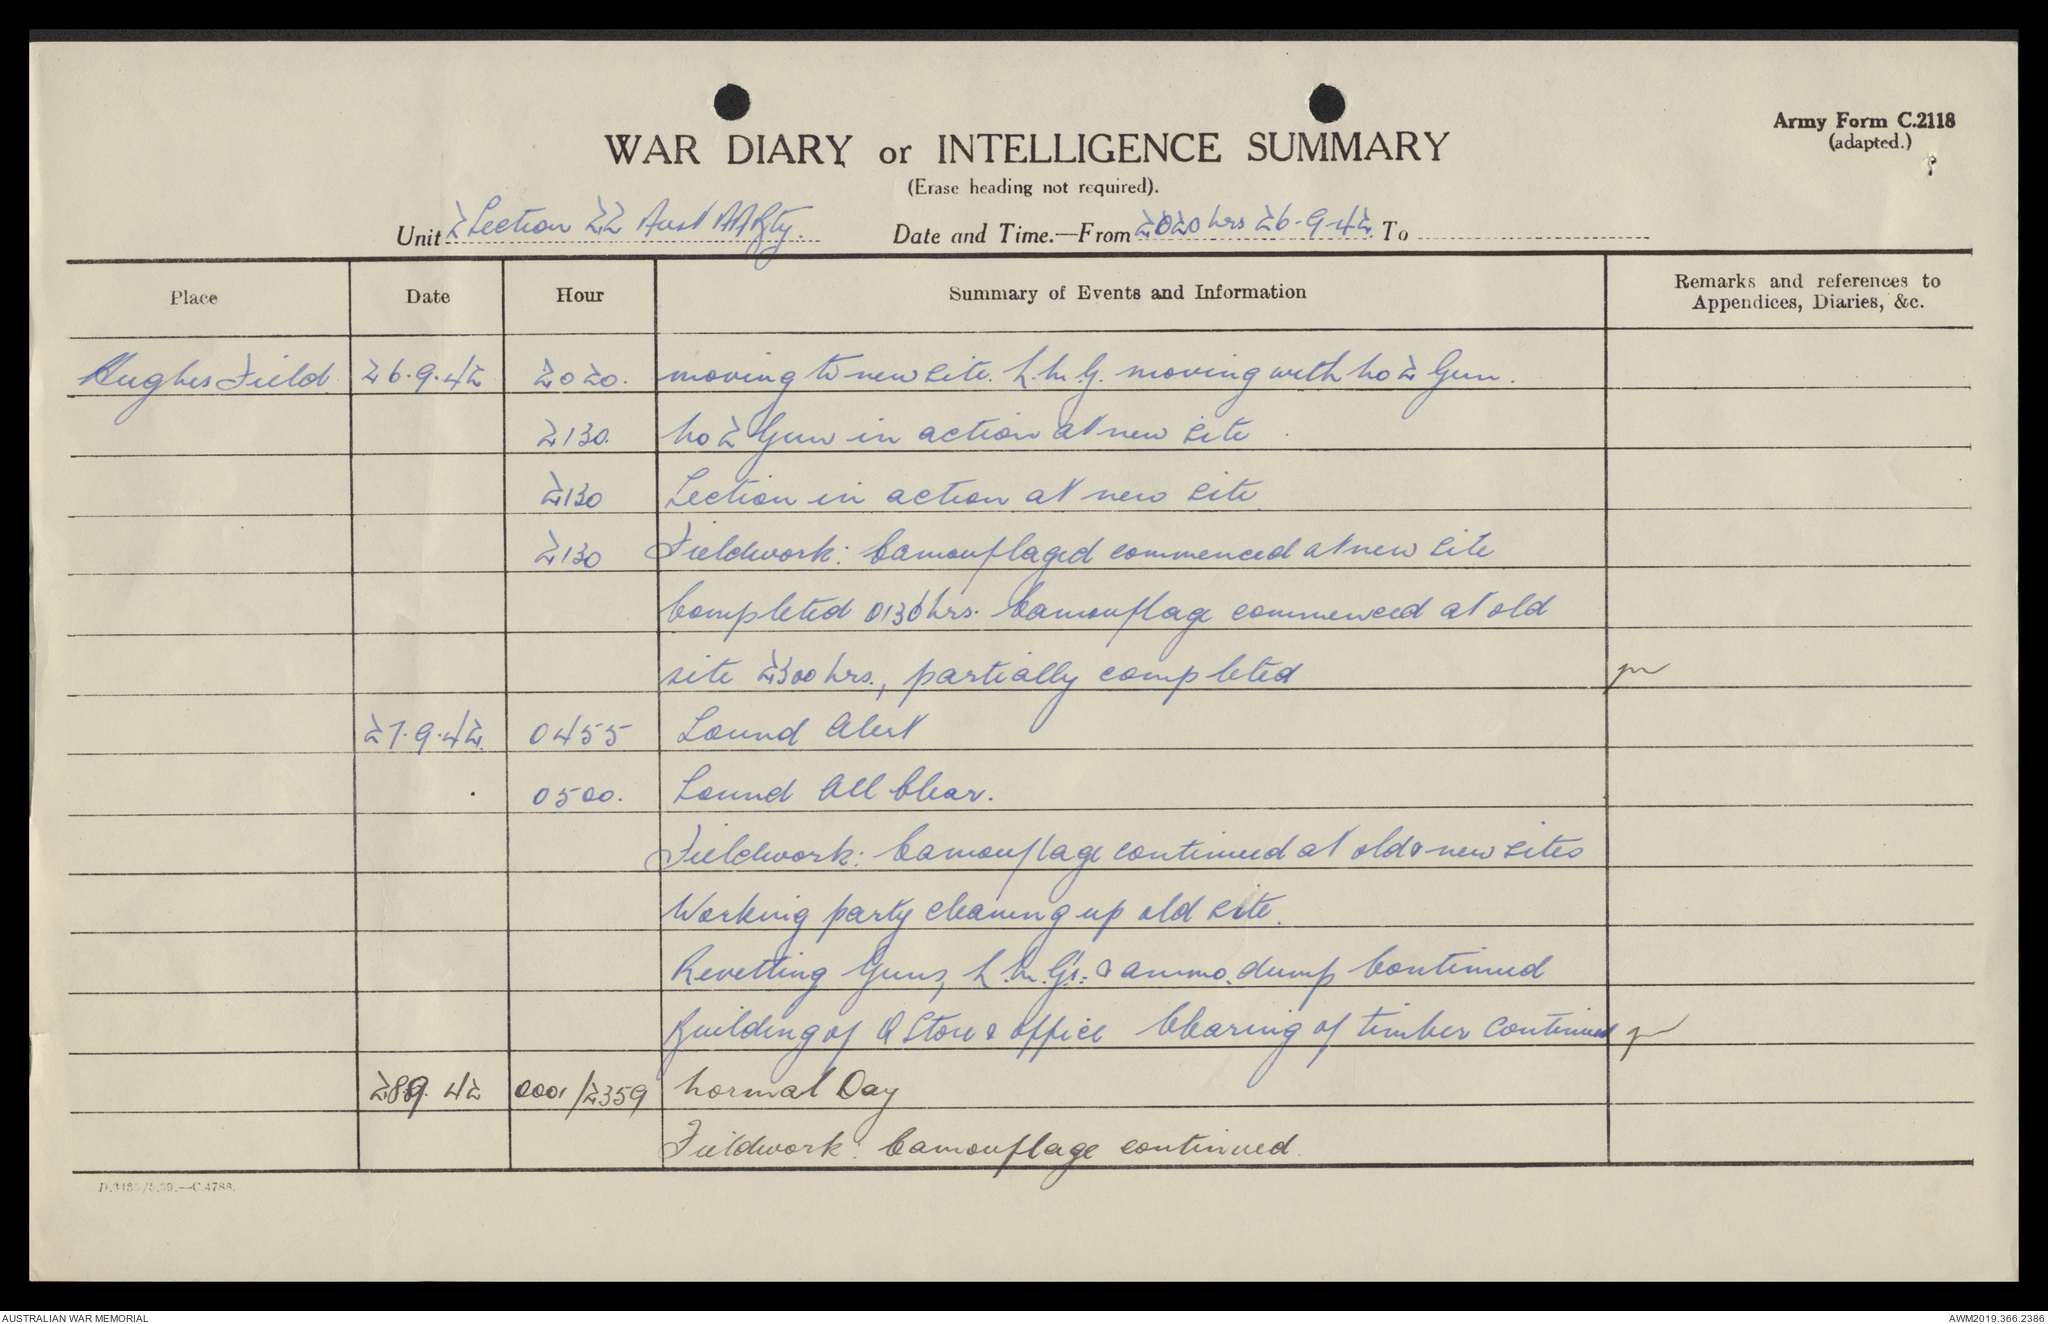 Army Form C.2118
(adapted.)
WAR DIARY or INTELLIGENCE SUMMARY
(Erase heading not required).
Unit 2 Section 22 Aust AA Bty. Date and Time.—From 2020 hrs 26-9-42. To
Place Date Hour Summary of Events and Information Remarks and references to Appendices, Diaries, &c.
Hughes Field. 26.9.42 2020. moving to new site. L.M.G. moving with No 2 Gun.
2130. No 2 Gun in action at new site.
2130 Section in action at new site
2130 Fieldwork: Camouflaged commenced at new site
Completed 0130 hrs. Camouflage commenced at old
site 2300 hrs., partially completed
27.9.42. 0455 Sound Alert
0500. Sound All Clear.
Fieldwork: Camouflage continued at old & new sites
Working party cleaning up old site.
Revetting Guns, L.M.G's. & ammo. dump Continued
Building of Q Store & office Clearing of timber Continued
28.9.42 0001/2359 Normal Day
Fieldwork: Camouflage continued.
AUSTRALIAN WAR MEMORIAL
AWM2019.366.2386